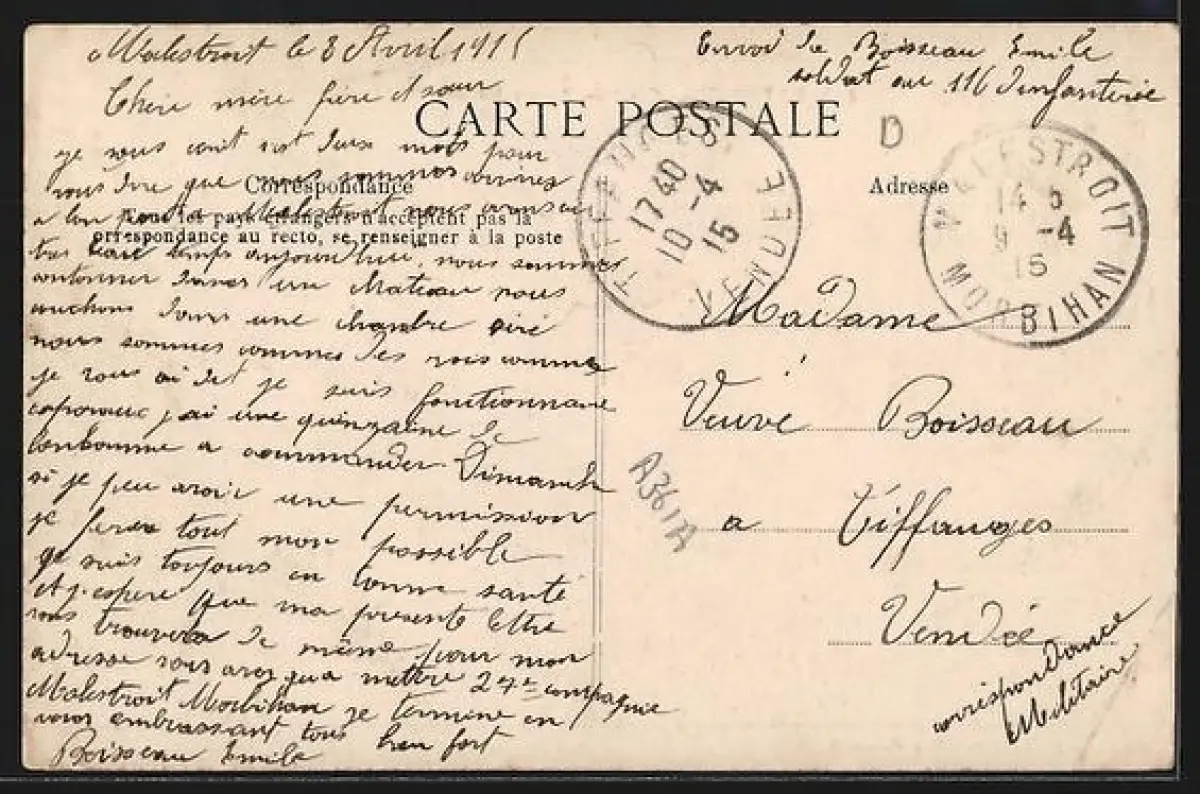 Malestroit le 8 Avril 1915
Chère mère frère et soeur
je vous écrit cest deux mots pour
vous dire que nous sommes arrivés
a bon port a Malestroit nous avons eu
très beau temps aujourdhui, nous sommes
cantonner dans un chateau nous
couchons dans une chambre ciré
nous sommes comme des rois comme
je vous ai dit je suis fonctionnaire
caporauc j'ai une quinzaine de
bonhomme a commander Dimanche
si je peu avoir une permission
je ferai tout mon possible
je suis toujours en bonne santé
et j'espere que ma presente lettre
vous trouvera de même pour mon
adresse vous avez qua mettre 27e compagnie
Malestroit Morbihan je termine en
vous embrassant tous bien fort
Boisseau Emile
CARTE POSTALE
Correspondance
Tous les pays étrangers n'acceptent pas la
orrespondance au recto, se renseigner à la poste
Envoi de Boisseau Emile
soldat au 116 d'infanterie
D
Adresse
TIFFAUGES
17 40
10 -4
15
VENDEE
MALESTROIT
14 5
9 -4
15
MORBIHAN
Madame
Veuve Boisseau
a Tiffauges
Vendée
A361A
correspondance
Militaire